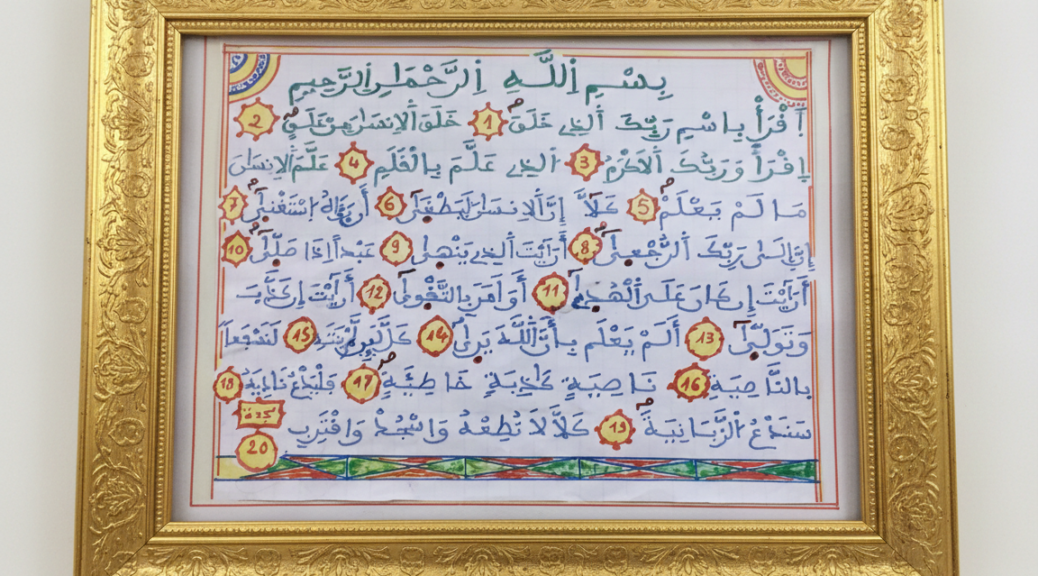 بِسْمِ اِللَّهِ اِلرَّحْمَٰنِ اِلرَّحِيمِ
اَ۪قْرَأْ بِاسْمِ رَبِّكَ اَلذِے خَلَقَ 1 خَلَقَ اَلْاِنسَٰنَ مِنْ عَلَقٍ 2
اِقْرَأْ وَرَبُّكَ اَلْأَكْرَمُ 3 اَلذِے عَلَّمَ بِالْقَلَمِ 4 عَلَّمَ اَلْاِنسَٰنَ
مَا لَمْ يَعْلَمْ 5 كَلَّا إِنَّ اَلْاِنسَٰنَ لَيَطْغَىٰ 6 أَن رَّءَاهُ اُسْتَغْنَىٰ 7
إِنَّ إِلَىٰ رَبِّكَ اَلرُّجْعَىٰ 8 أَرَٰٓيْتَ اَلذِے يَنْهَىٰ 9 عَبْداً اِذَا صَلَّىٰ 10
أَرَٰٓيْتَ إِن كَانَ عَلَى اَلْهُدَىٰ 11 أَوَ اَمَرَ بِالتَّقْوَىٰ 12 أَرَٰٓيْتَ إِن كَذَّبَ
وَتَوَلَّىٰ 13 أَلَمْ يَعْلَم بِأَنَّ اَللَّهَ يَرَىٰ 14 كَلَّا لَئِن لَّمْ يَنتَهِ 15 لَنَسْفَعاً
بِالنَّاصِيَةِ 16 نَاصِيَةٍ كَٰذِبَةٍ خَاطِئَةٍ 17 فَلْيَدْعُ نَادِيَهُ 18
سَنَدْعُ اُلزَّبَانِيَةَ 19 كَلَّا لَا تُطِعْهُ وَاسْجُدْ وَاقْتَرِب
سجدة
20